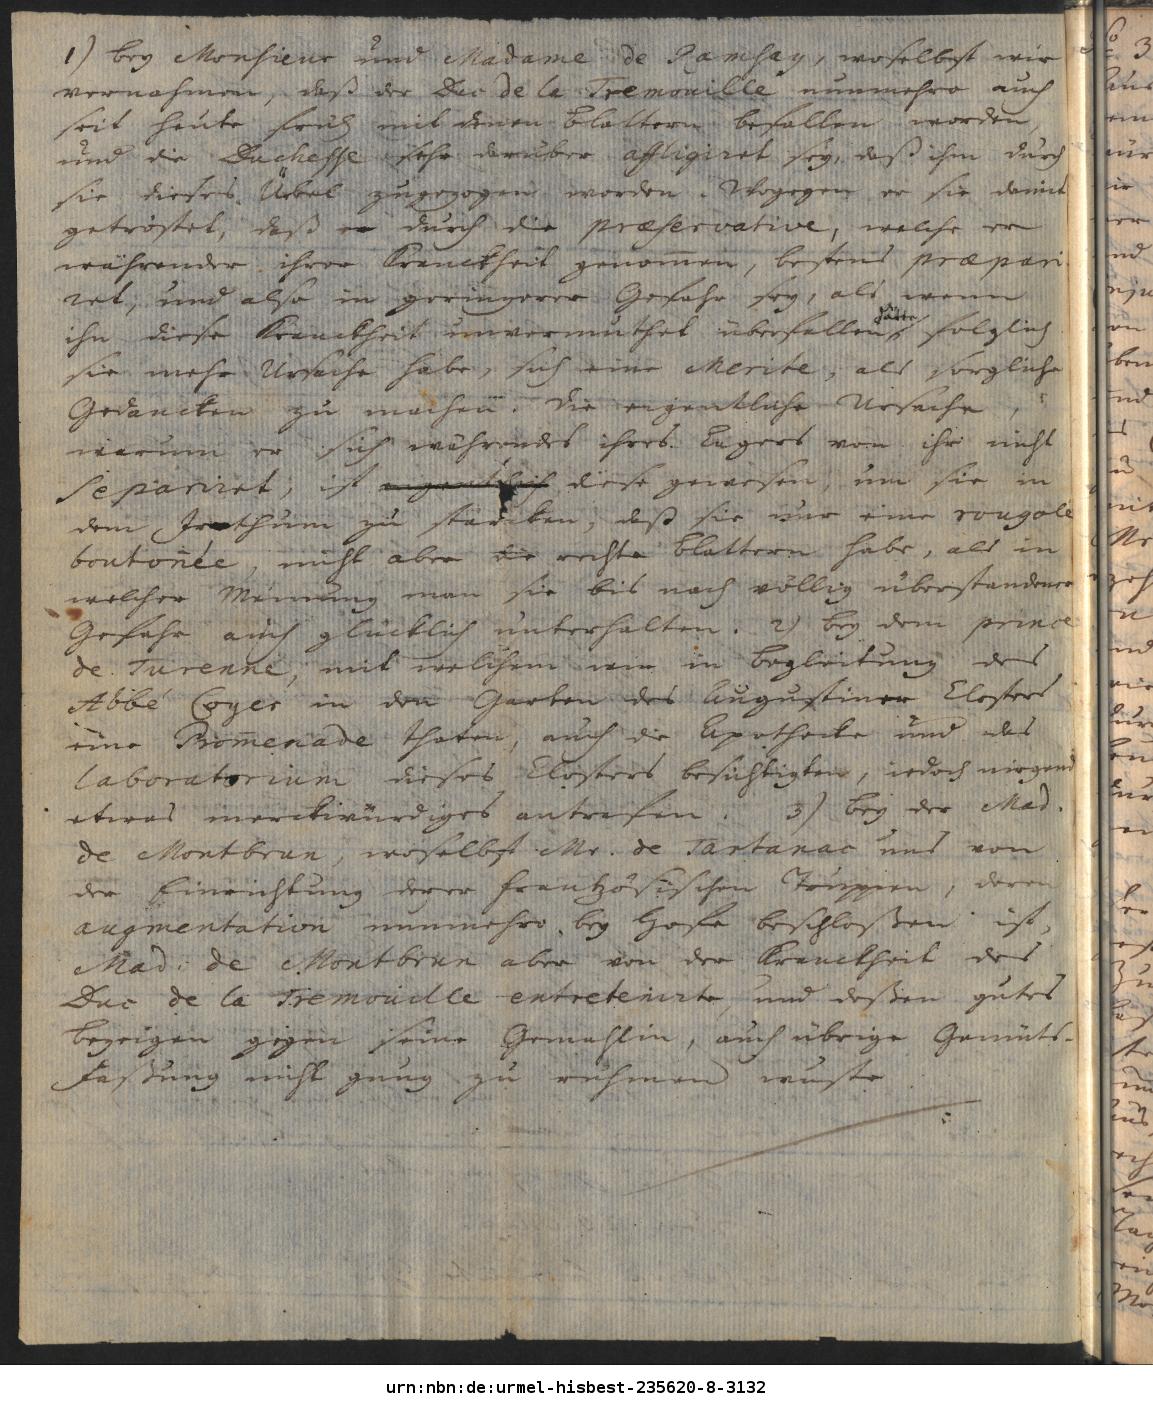 1) bey Monsieur und Madame de Ramsay, woselbst wir
vernahmen, daß der Duc de la Tremouille nunmehro auch
seit heute früh mit denen Blattern befallen worden,
und die Duchesse sehr darüber affligiret sey, daß ihm durch
sie dieses Übel zugezogen worden. Wogegen er sie damit
getröstet, daß er durch die præservative, welche er
währender ihrer Kranckheit genommen, bestens præpari
ret, und also in geringerer Gefahr sey, als wenn
ihn diese Kranckheit unvermuthet überfallen hätte, folglich
sie mehr Ursache habe, sich eine Merite, als sorgliche
Gedancken zu machen. Die eigentliche Ursache,
warum er sich währendes ihres Lagers von ihr nicht
separiret, ist eigentlich diese gewesen, um sie in
dem Irrthum zu stärcken, daß sie nur eine rougole
boutonée, nicht aber die rechte Blattern habe, als in
welcher Meinung man sie bis nach völlig überstandener
Gefahr auch glücklich unterhalten. 2) bey dem prince
de Turenne, mit welchem wir in Begleitung des
Abbé Coyer in den Garten des Augustiner Closters
eine Promenade thaten, auch die Apothecke und das
laboratorium dieses Closters besichtigten, jedoch nirgend
etwas merckwürdiges antrafen. 3) bey der Mad.
de Montbrun, woselbst Mr. de Tartanac uns von
der Einrichtung derer frantzösischen Trouppen, deren
augmentation nunmehro bey Hofe beschloßen ist,
Mad. de Montbrun aber von der Kranckheit des
Duc de la Tremouille entretenirte, und deßen gutes
bezeigen gegen seine Gemahlin, auch übrige Gemüts-
Faßung nicht gnug zu rühmen wuste
urn:nbn:de:urmel-hisbest-235620-8-3132